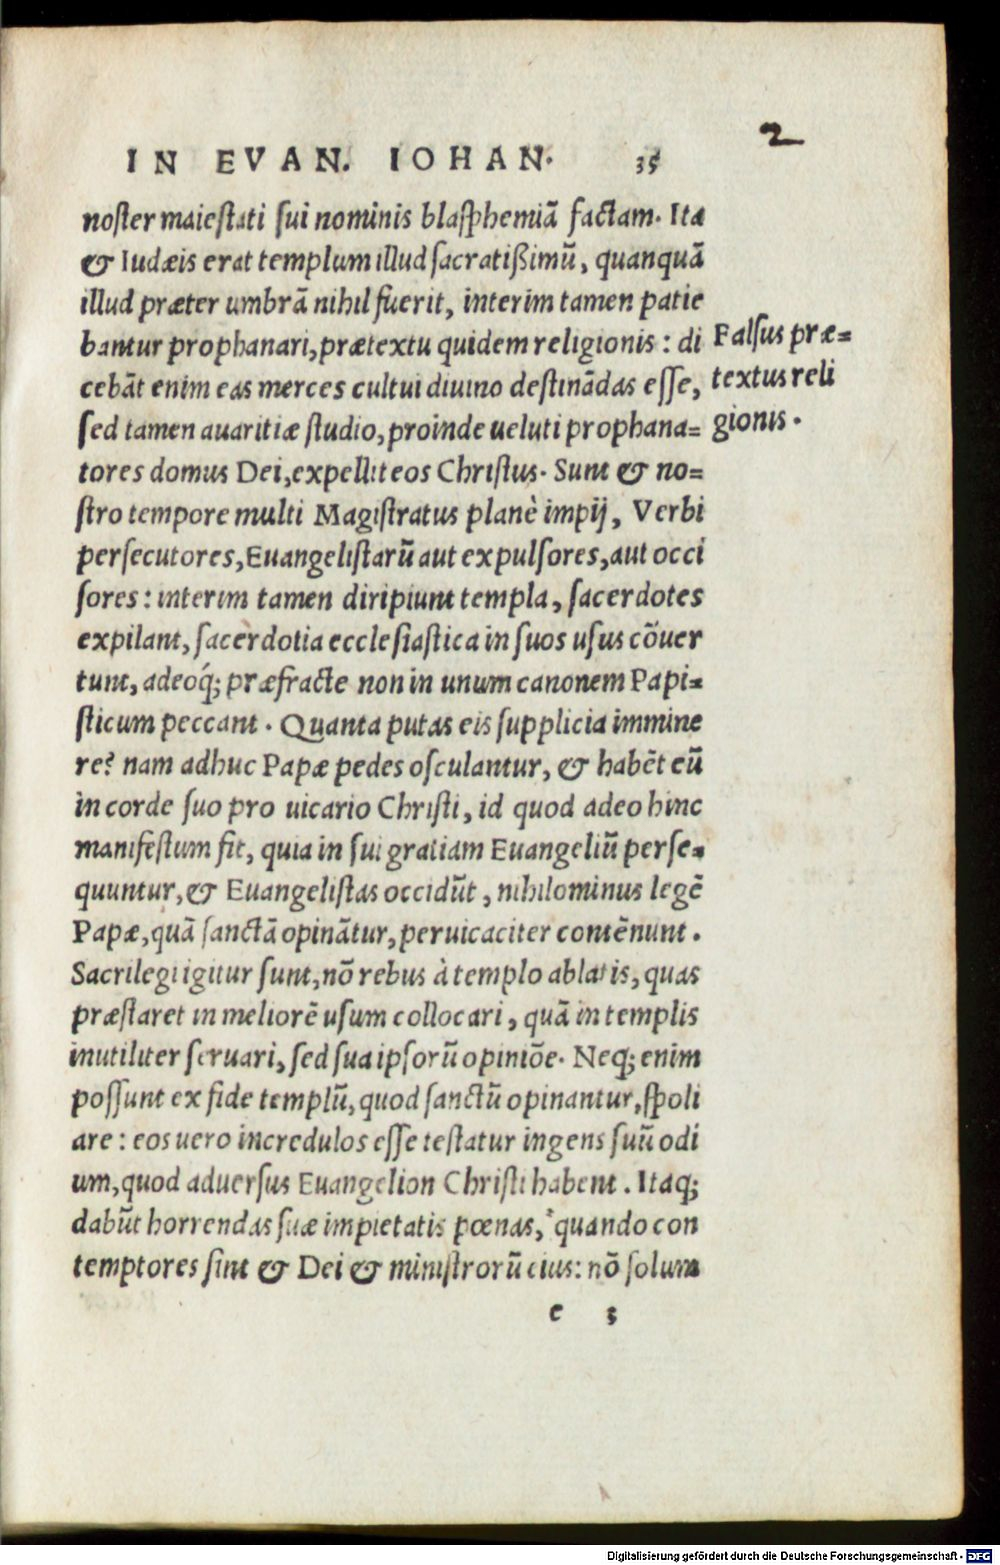 2
IN EVAN. IOHAN. 35
noſter maieſtati ſui nominis blaſphemiã factam. Ita
& Iudæis erat templum illud ſacratißimũ, quanquã
illud præter umbrã nihil fuerit, interim tamen patie
bantur prophanari, prætextu quidem religionis : di
cebãt enim eas merces cultui diuino deſtinãdas eſſe,
ſed tamen auaritiæ ſtudio, proinde ueluti prophana=
tores domus Dei, expellit eos Chriſtus. Sunt & no=
ſtro tempore multi Magiſtratus planè impij, Verbi
perſecutores, Euangeliſtarũ aut expulſores, aut occi
ſores : interim tamen diripiunt templa, ſacerdotes
expilant, ſacerdotia eccleſiaſtica in ſuos uſus cõuer
tunt, adeoq́; præfracte non in unum canonem Papi=
ſticum peccant. Quanta putas eis ſupplicia immine
re? nam adhuc Papæ pedes oſculantur, & habẽt eũ
in corde ſuo pro uicario Chriſti, id quod adeo hinc
manifeſtum fit, quia in ſui gratiam Euangeliũ perſe=
quuntur, & Euangeliſtas occidũt, nihilominus legẽ
Papæ, quã ſanctã opinãtur, peruicaciter contẽnunt.
Sacrilegi igitur ſunt, nõ rebus à templo ablatis, quas
præſtaret in meliorẽ uſum collocari, quã in templis
inutiliter ſeruari, ſed ſua ipſorũ opiniõe. Neq; enim
poſſunt ex fide templũ, quod ſanctũ opinantur, ſpoli
are : eos uero incredulos eſſe teſtatur ingens ſuũ odi
um, quod aduerſus Euangelion Chriſti habent. Itaq;
dabũt horrendas ſuæ impietatis pœnas, quando con
temptores ſint & Dei & miniſtrorũ eius: nõ ſolum
e 3
Falſus præ=
textus reli
gionis.
Digitalisierung gefördert durch die Deutsche Forschungsgemeinschaft - DFG